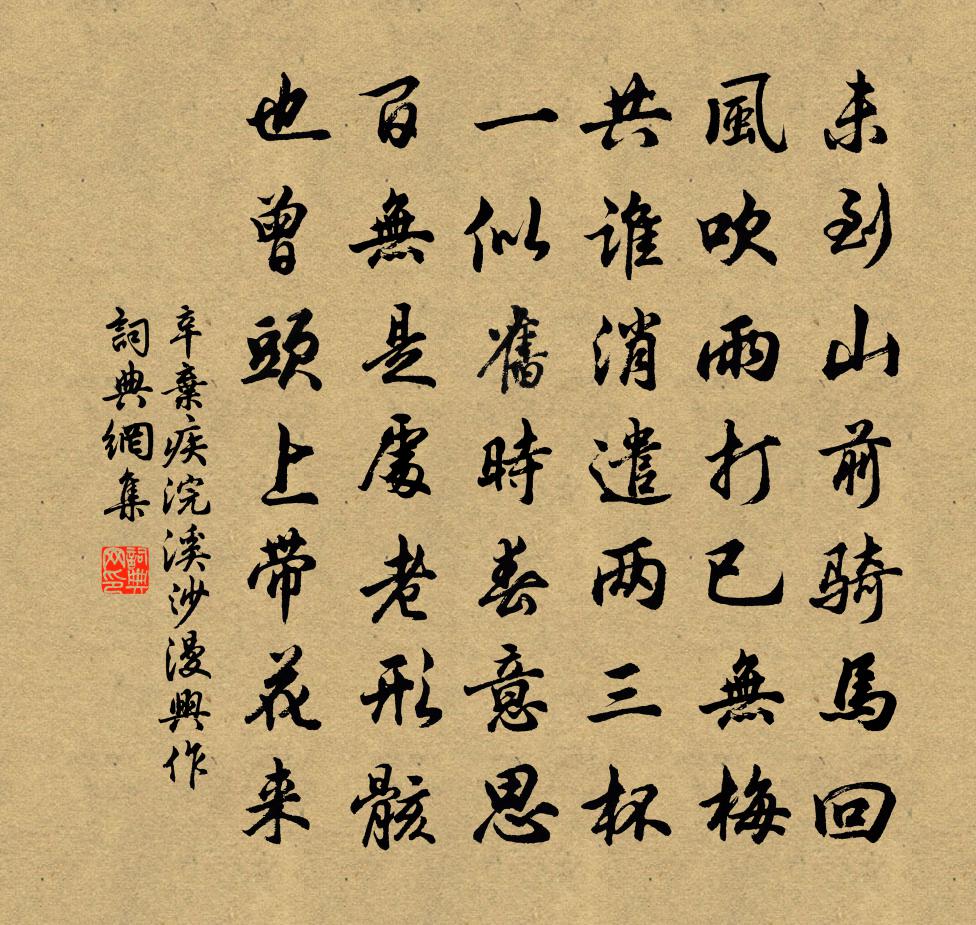 未到山前骑馬回
風吹雨打已無梅
共誰消遣两三杯
一似舊時春意思
百無是處老形骸
也曾頭上带花来
辛棄疾浣溪沙漫興作
詞典網集
詞典网印